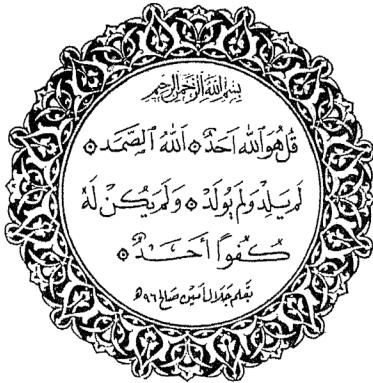 بِسْمِ اللَّهِ الرَّحْمَنِ الرَّحِيمِ
قُلْ هُوَ اللَّهُ أَحَدٌ ۝ اللَّهُ الصَّمَدُ ۝
لَمْ يَلِدْ وَلَمْ يُولَدْ ۝ وَلَمْ يَكُنْ لَهُ
كُفُوًا أَحَدٌ ۝
بقلم جلال أمين صالح ٩٦هـ